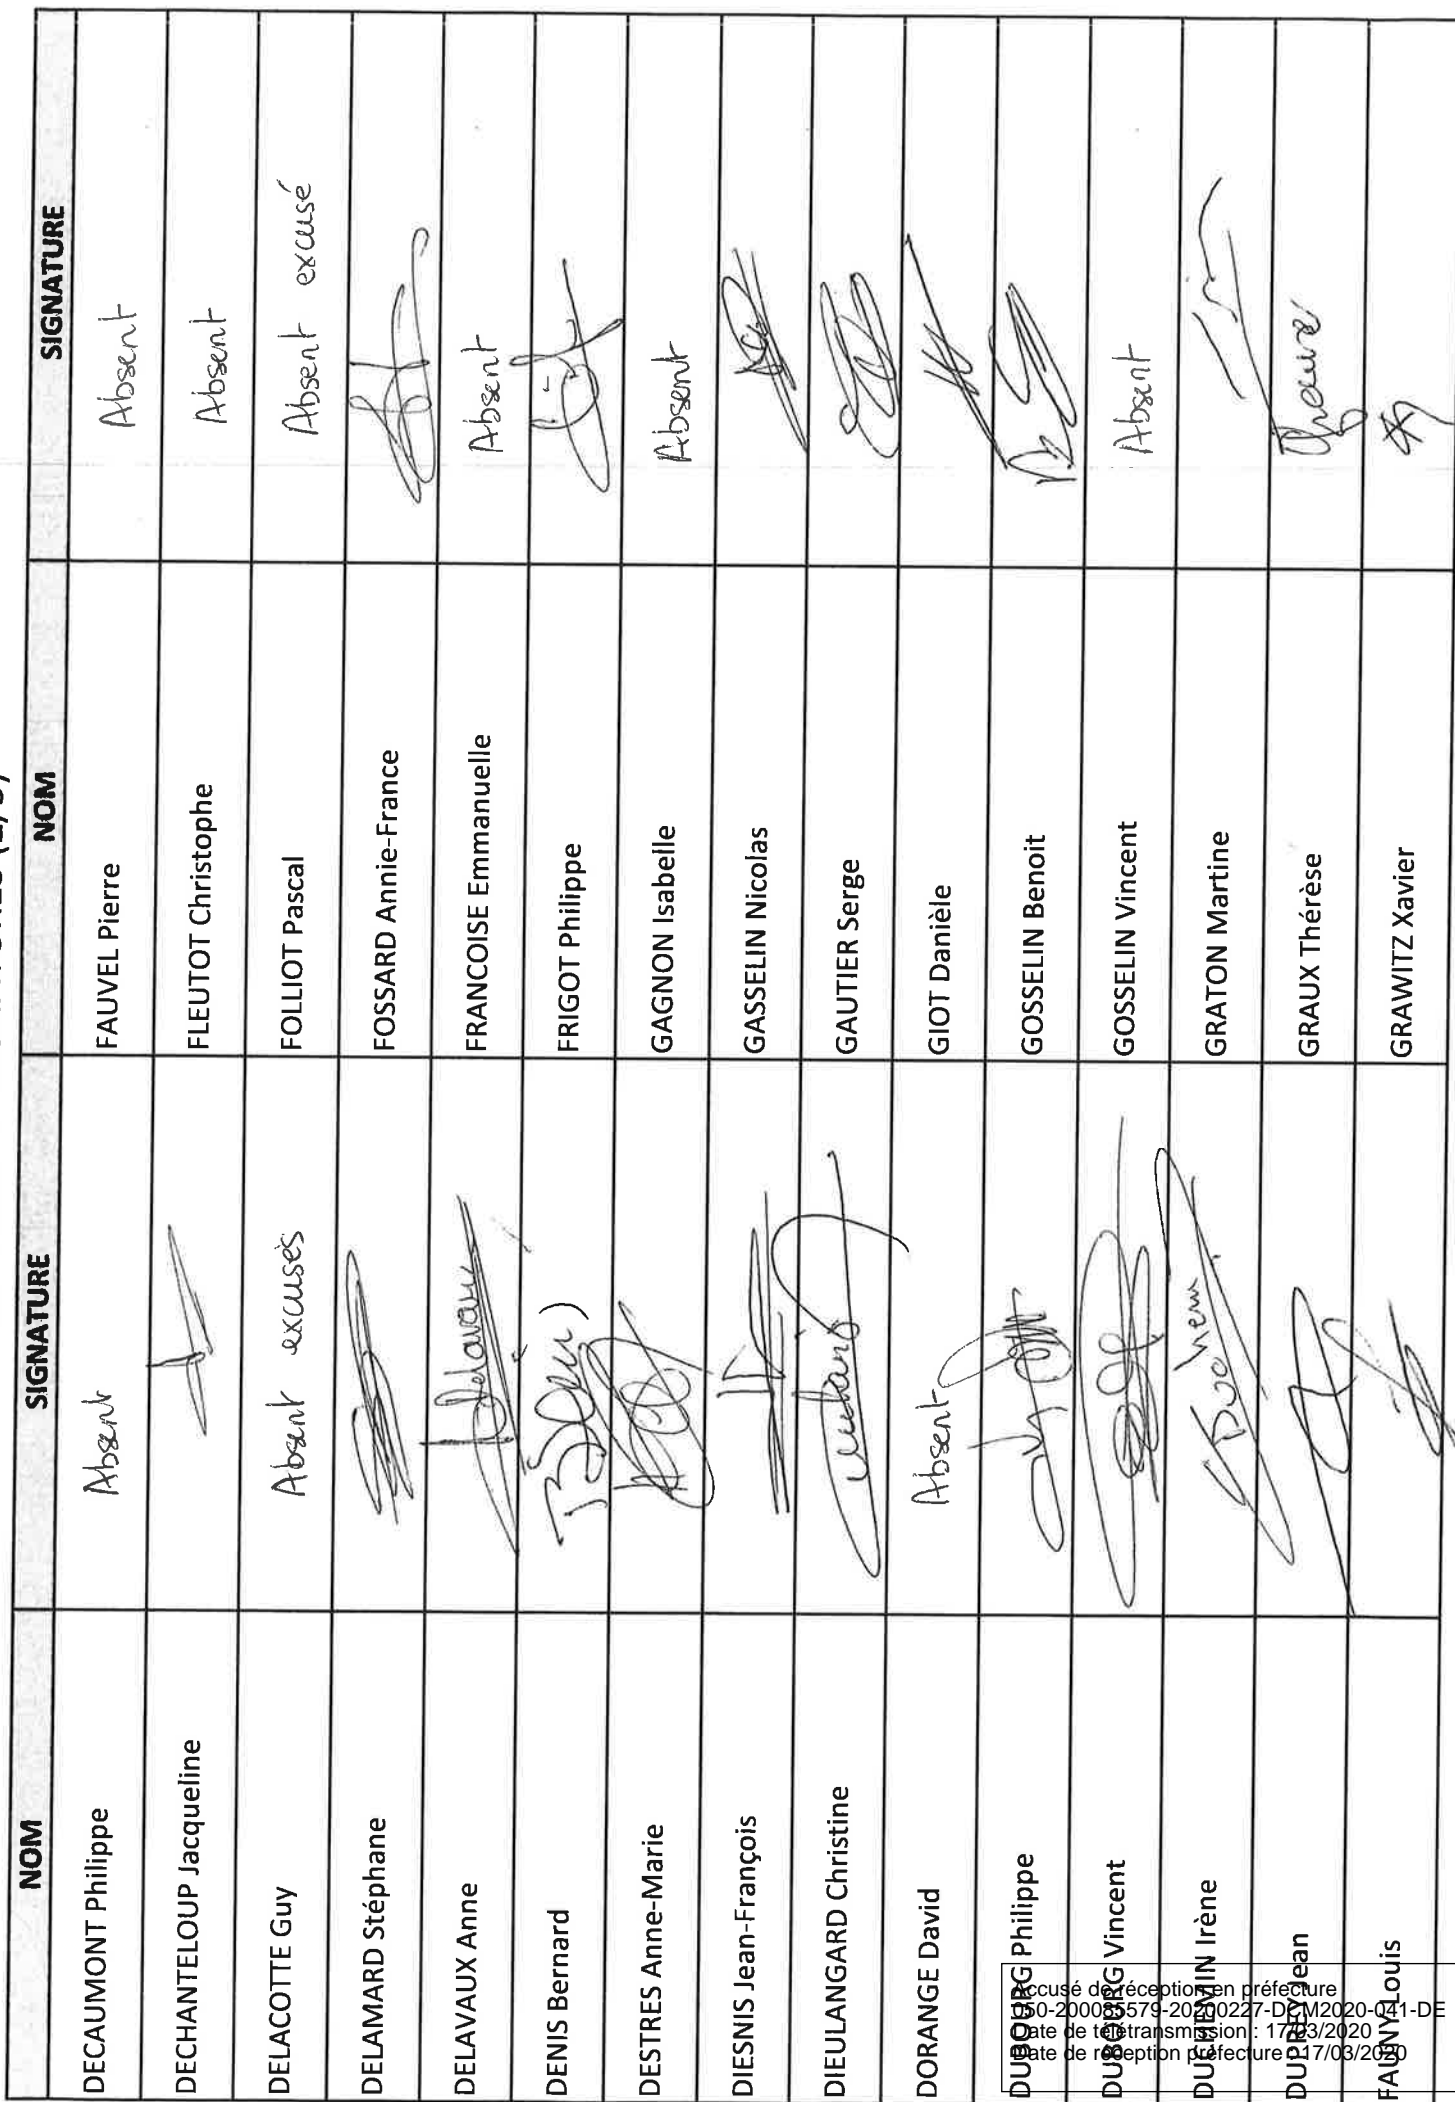 NOM SIGNATURE NOM SIGNATURE
DECAUMONT Philippe Absent FAUVEL Pierre Absent
DECHANTELOUP Jacqueline FLEUTOT Christophe Absent
DELACOTTE Guy Absent excusés FOLLIOT Pascal Absent excusé
DELAMARD Stéphane FOSSARD Annie-France
DELAVAUX Anne Delavaux FRANCOISE Emmanuelle Absent
DENIS Bernard FRIGOT Philippe
DESTRES Anne-Marie GAGNON Isabelle Absent
DIESNIS Jean-François GASSELIN Nicolas
DIEULANGARD Christine GAUTIER Serge
DORANGE David Absent GIOT Danièle
DUBOURG Philippe GOSSELIN Benoit
DUBOURG Vincent GOSSELIN Vincent Absent
DUCHEMIN Irène GRATON Martine
DUPREY Jean GRAUX Thérèse
FAUNY Louis GRAWITZ Xavier
Accusé de réception en préfecture
050-200085579-20200227-DCM2020-041-DE
Date de télétransmission : 17/03/2020
Date de réception préfecture : 17/03/2020